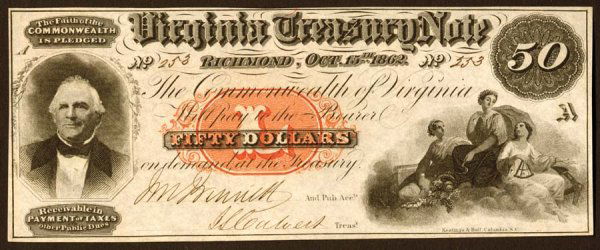 The Faith of the
COMMONWEALTH
IS PLEDGED
Virginia Treasury Note
50
A
No 253
RICHMOND, OCT. 15TH 1862.
No 253
The Commonwealth of Virginia
Will pay to the Bearer
L
FIFTY DOLLARS
A
on demand at the Treasury.
And Pub. Accts
Treasr
Receivable in
PAYMENT OF TAXES
Other Public Dues
Keatinge & Ball, Columbia, S.C.